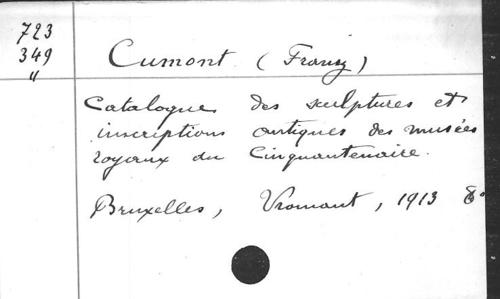 723
349
"
Cumont (Franz)
Catalogue des sculptures et
inscriptions antiques des musées
royaux du Cinquantenaire.
Bruxelles, Vromant, 1913 8°